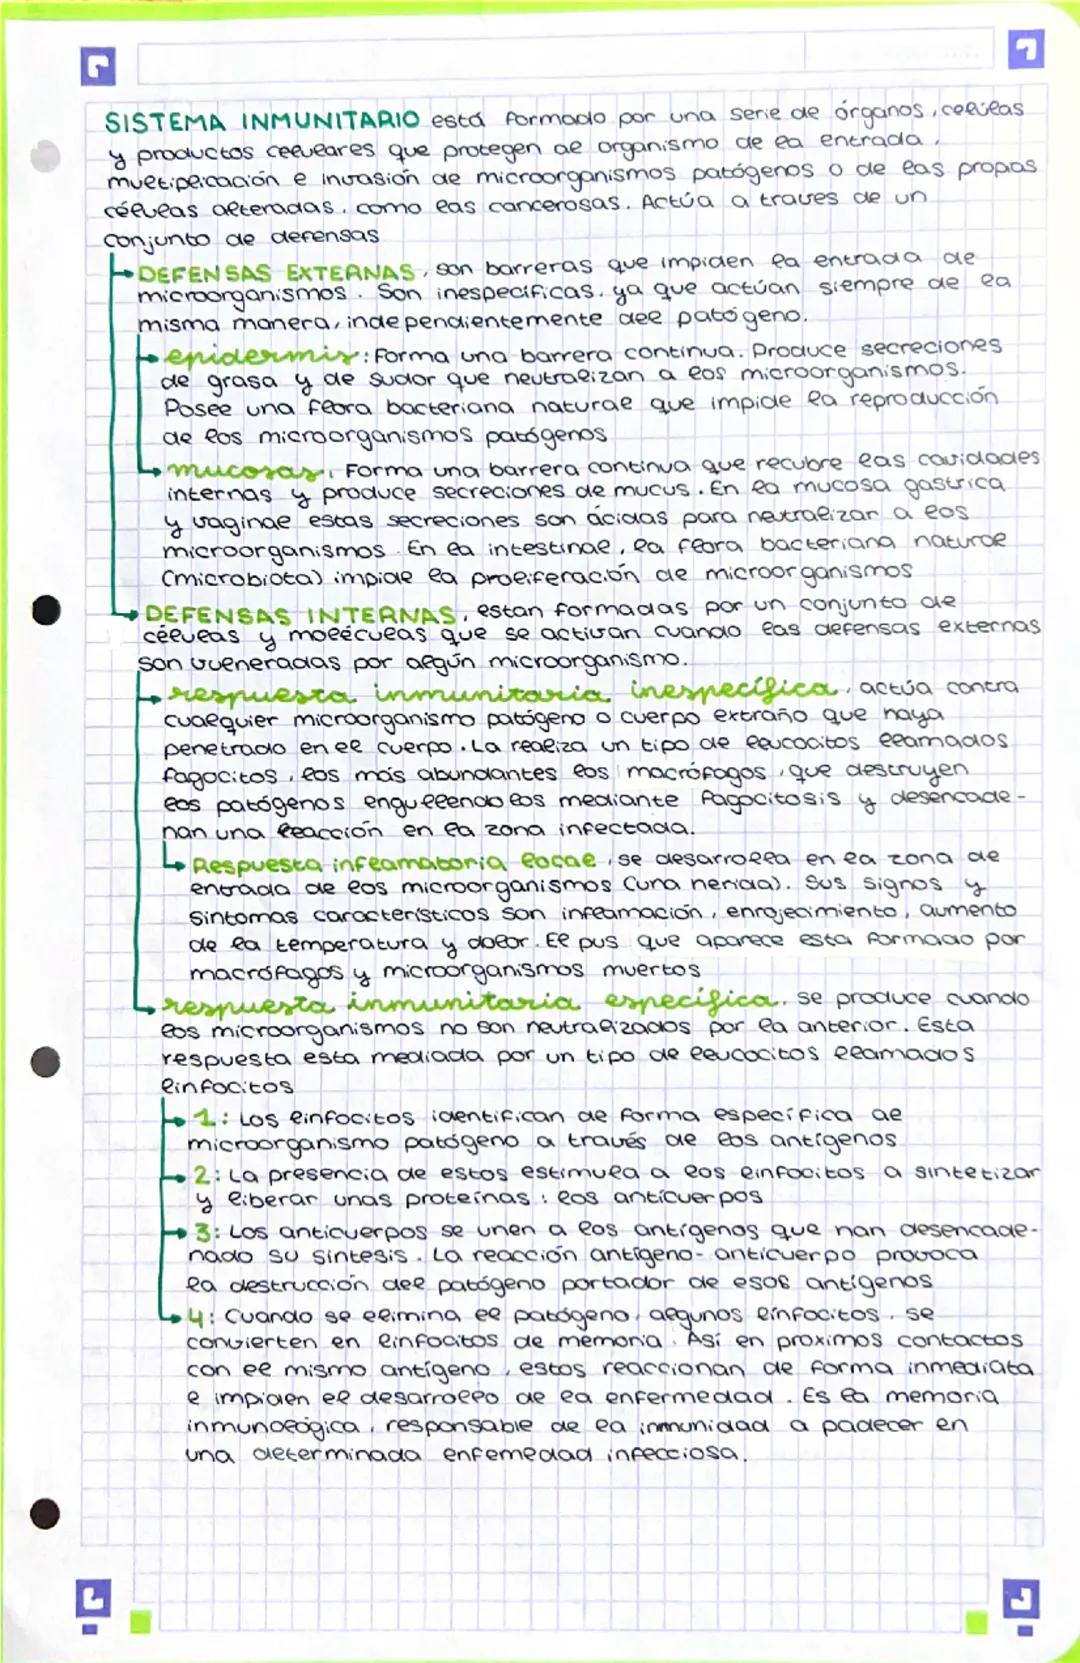 SISTEMA INMUNITARIO está formado por una serie de órganos, células
y productos celulares que protegen al organismo de la entrada,
multiplicación e invasión de microorganismos patógenos o de las propias
células alteradas, como las cancerosas. Actúa a traves de un
conjunto de defensas
DEFENSAS EXTERNAS, son barreras que impiden la entrada de
microorganismos. Son inespecíficas, ya que actúan siempre de la
misma manera, independientemente del patógeno.
epidermis: Forma una barrera continua. Produce secreciones
de grasa y de sudor que neutralizan a los microorganismos.
Posee una flora bacteriana natural que impide la reproducción
de los microorganismos patógenos
mucosas, Forma una barrera continua que recubre las cavidades
internas y produce secreciones de mucus. En la mucosa gastrica
y vaginal estas secreciones son ácidas para neutralizar a los
microorganismos. En la intestinal, la flora bacteriana natural
(microbiota) impide la proliferación de microorganismos
DEFENSAS INTERNAS, estan formadas por un conjunto de
células y moléculas que se activan cuando las defensas externas
son vulneradas por algún microorganismo.
respuesta inmunitaria inespecífica, actúa contra
cualquier microorganismo patógeno o cuerpo extraño que haya
penetrado en el cuerpo. La realiza un tipo de leucocitos llamados
fagocitos, los más abundantes los macrófagos, que destruyen
los patógenos engullendolos mediante fagocitosis y desencade-
nan una reacción en la zona infectada.
Respuesta inflamatoria local, se desarrolla en la zona de
entrada de los microorganismos (una herida). Sus signos y
sintomas característicos son inflamación, enrojecimiento, aumento
de la temperatura y dolor. El pus que aparece esta formado por
macrófagos y microorganismos muertos
respuesta inmunitaria específica, se produce cuando
los microorganismos no son neutralizados por la anterior. Esta
respuesta esta mediada por un tipo de leucocitos llamados
linfocitos
1: Los linfocitos identifican de forma específica al
microorganismo patógeno a través de los antígenos
2: La presencia de estos estimula a los linfocitos a sintetizar
y liberar unas proteínas: los anticuerpos
3: Los anticuerpos se unen a los antígenos que han desencade-
nado su síntesis. La reacción antígeno-anticuerpo provoca
la destrucción del patógeno portador de esos antígenos
4: Cuando se elimina el patógeno, algunos linfocitos, se
convierten en linfocitos de memoria. Así en proximos contactos
con el mismo antígeno, estos reaccionan de forma inmediata
e impiden el desarrollo de la enfermedad. Es la memoria
inmunológica, responsable de la inmunidad a padecer en
una determinada enfemedad infecciosa.